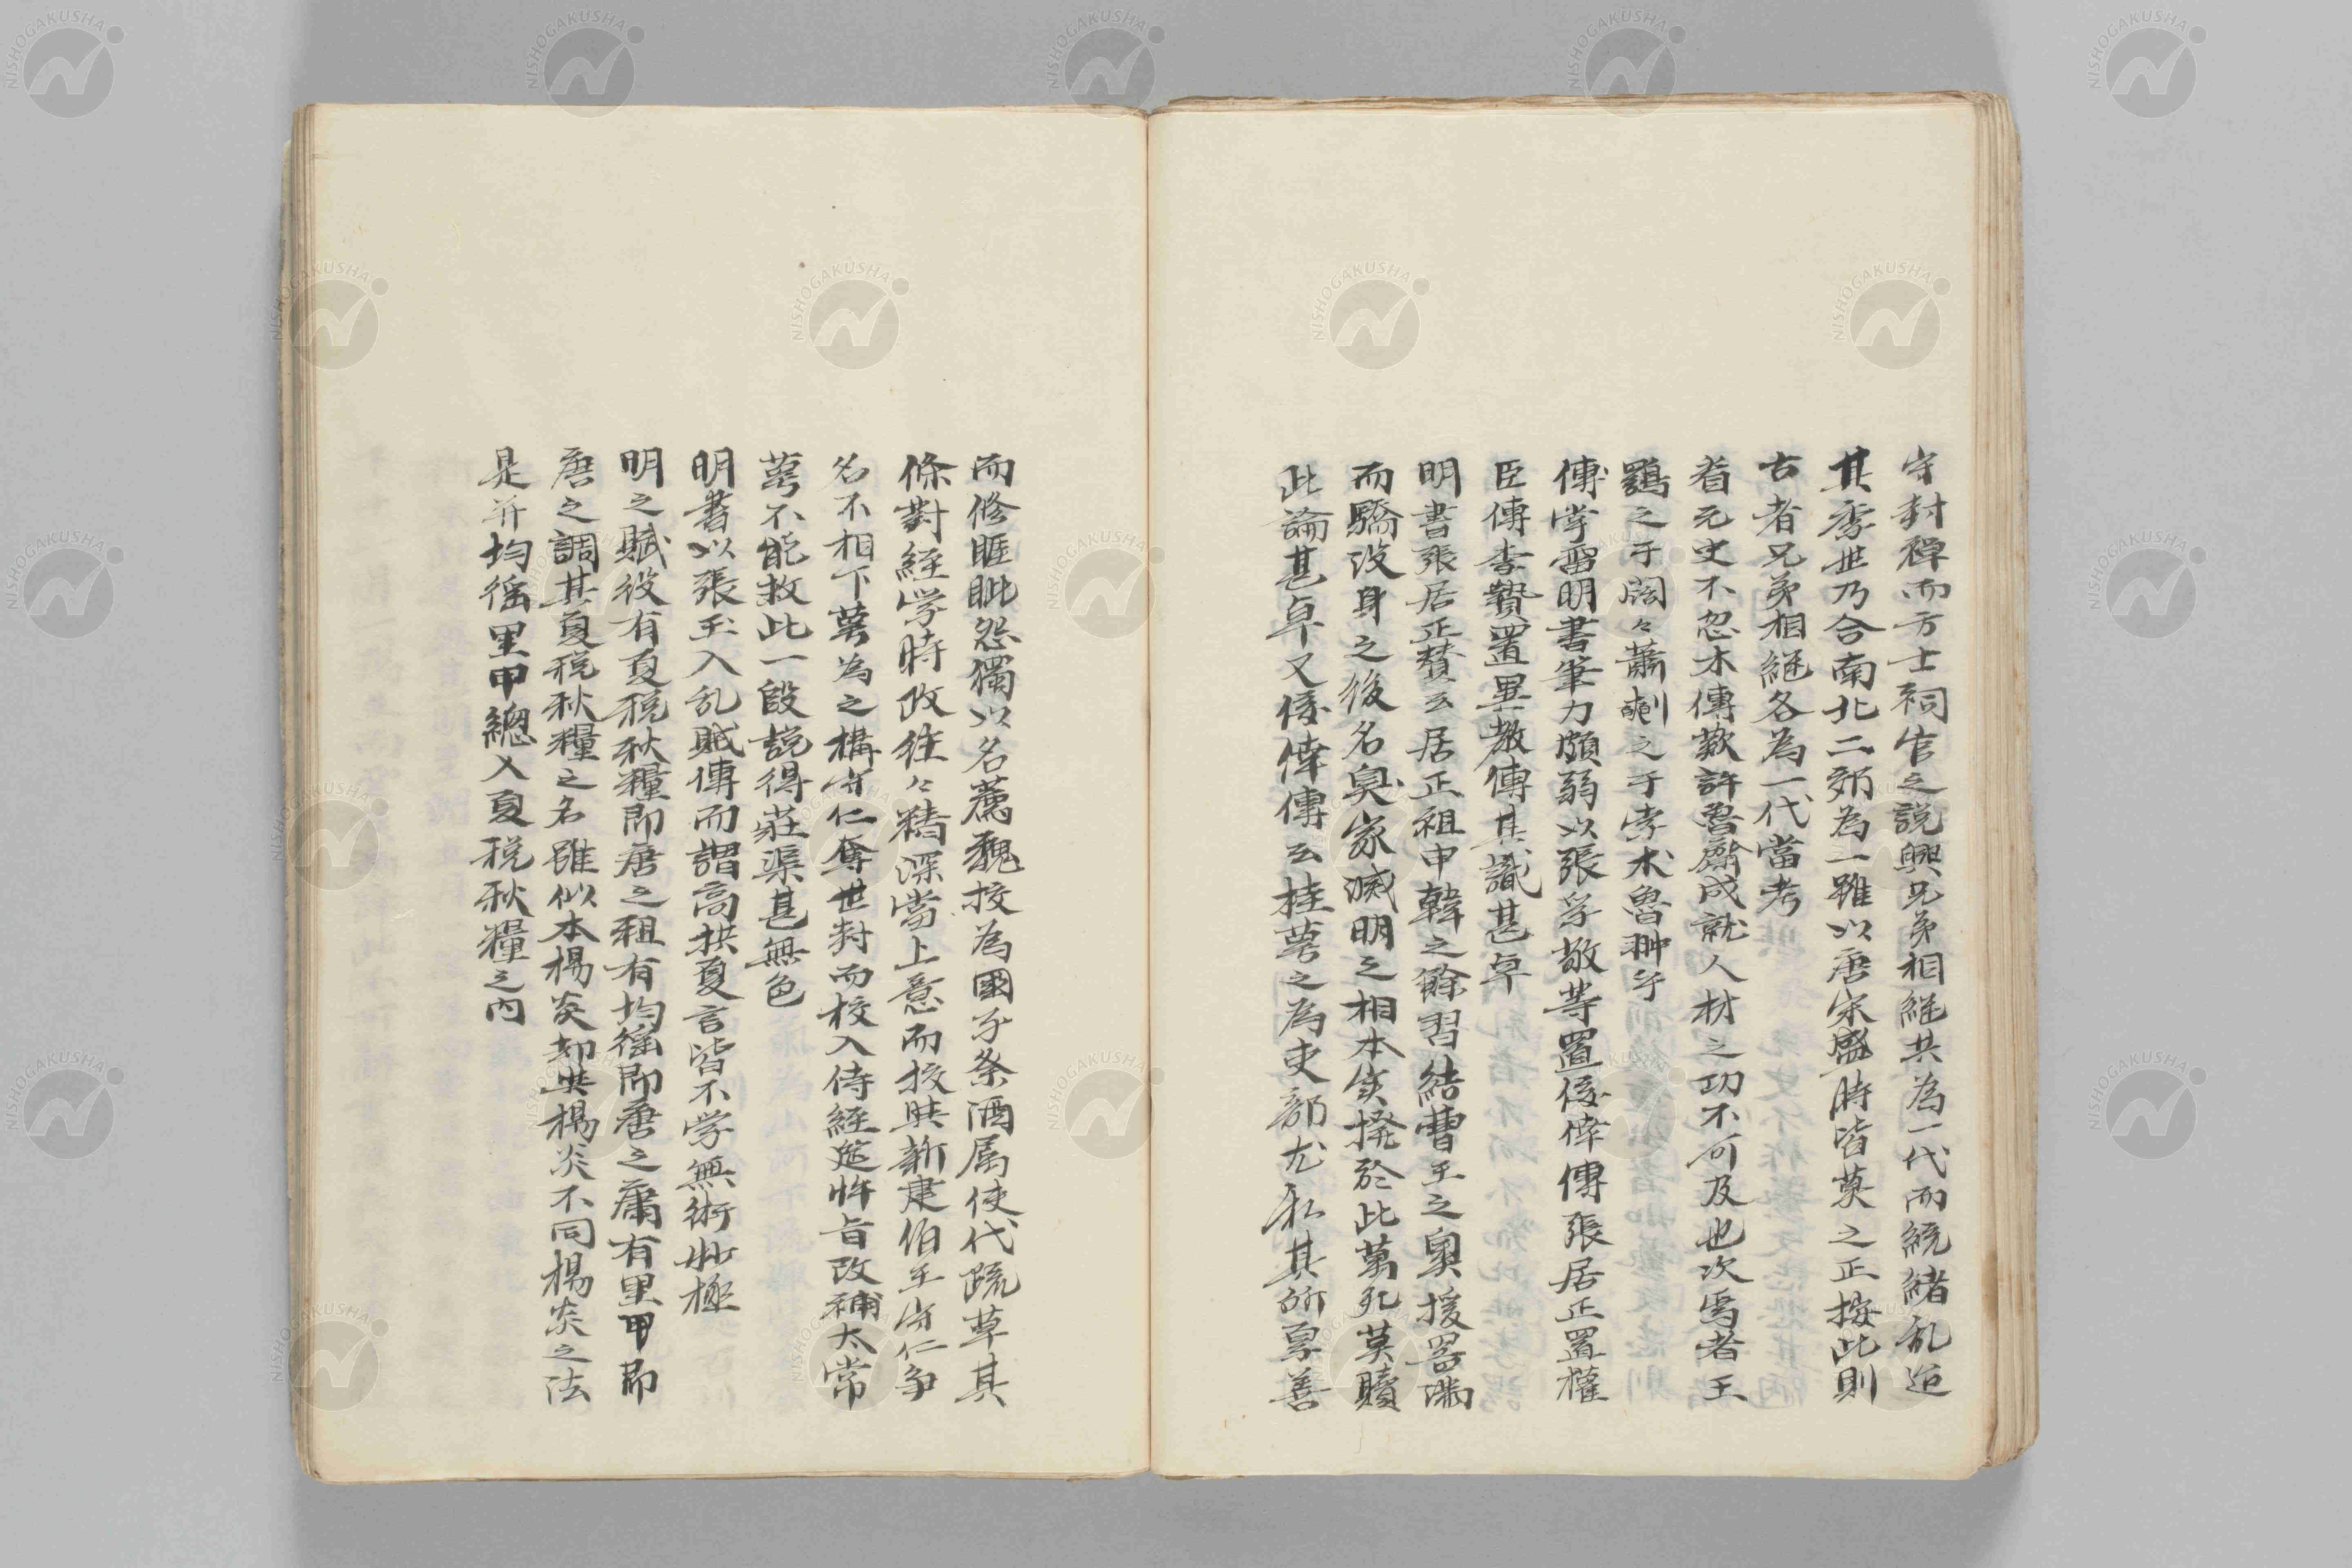 守封禅而方士祠官之説興兄弟相継共為一代而統緒乱迨
其季世乃合南北二郊為一雖以唐宋盛時皆莫之正按此則
古者兄弟相継各為一代當考
看元史不忽木傳歎許魯齋成就人材之功不可及也次焉者王
鶚之于闊々蕭𣂏之于孛术魯翀乎
傳学雷明書筆力頗弱以張孚敬等置侫倖傳張居正置權
臣傳李贄置異教傳其識甚卓
明書張居正賛云居正祖申韓之餘習結曹王之奥援器満
而驕没身之後名臭家滅明之相本実撥於此萬死莫贖
此論甚卓又侫倖傳云桂萼之為吏部尤私其所厚善
而修睚眦怨獨以名薦魏校為國子祭酒属使代疏草其
條對経学時政往々精深當上意而校與新建伯王守仁争
名不相下萼為之構守仁奪世封而校入侍経筵忤旨改補太常
萼不能救此一段説得莊渠甚無色
明書以張玉入乱賊傳而謂高拱夏言皆不学無術妙極
明之賦役有夏税秋糧即唐之租有均徭即唐之庸有里甲即
唐之調其夏税秋糧之名雖似本楊炎却與楊炎不同楊炎之法
是并均徭里甲總入夏税秋糧之内
NISHOGAKUSHA